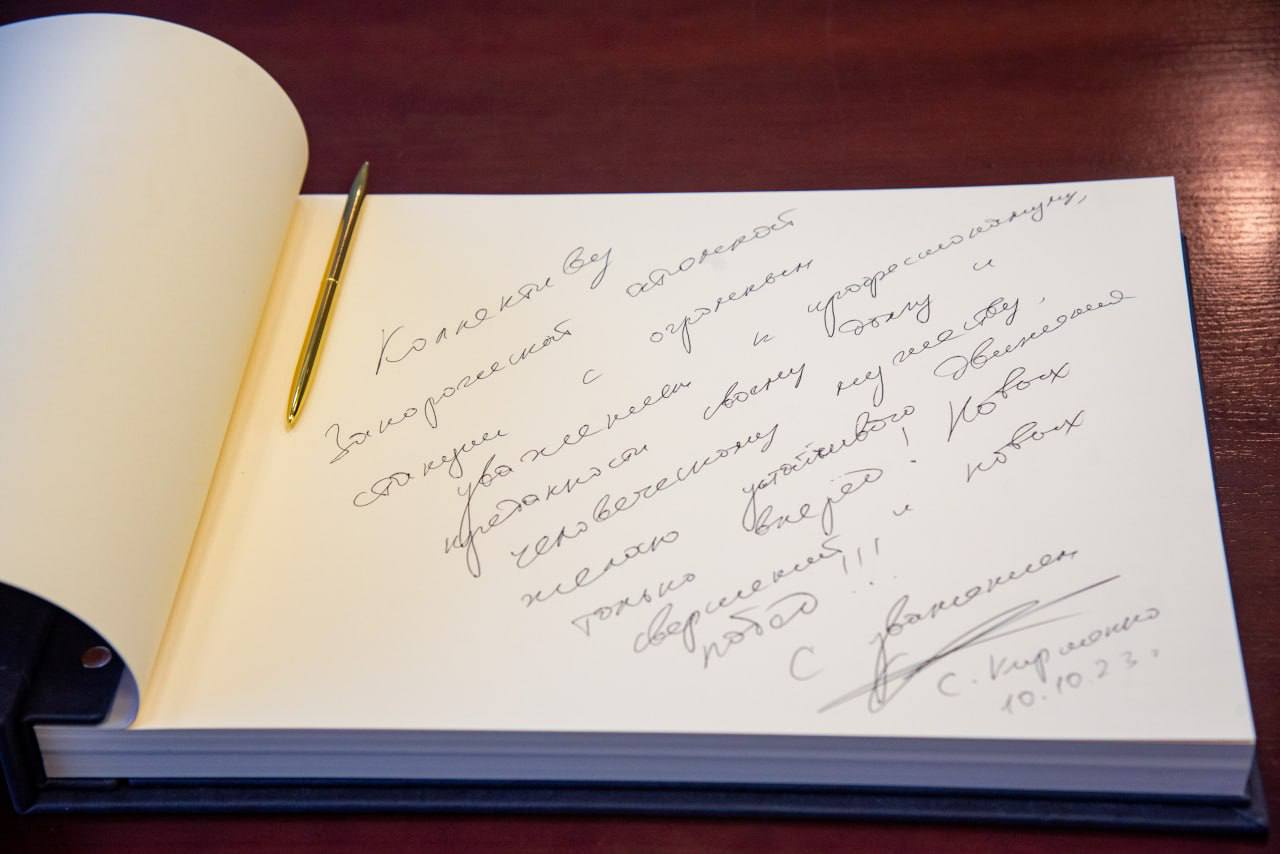 Коллективу
Запорожской атомной
станции с огромным
уважением к профессионализму,
преданности своему долгу и
человеческому мужеству,
желаю устойчивого движения
только вперёд! Новых
свершений и новых
побед!!!
С уважением
С. Кириенко
10.10.23.